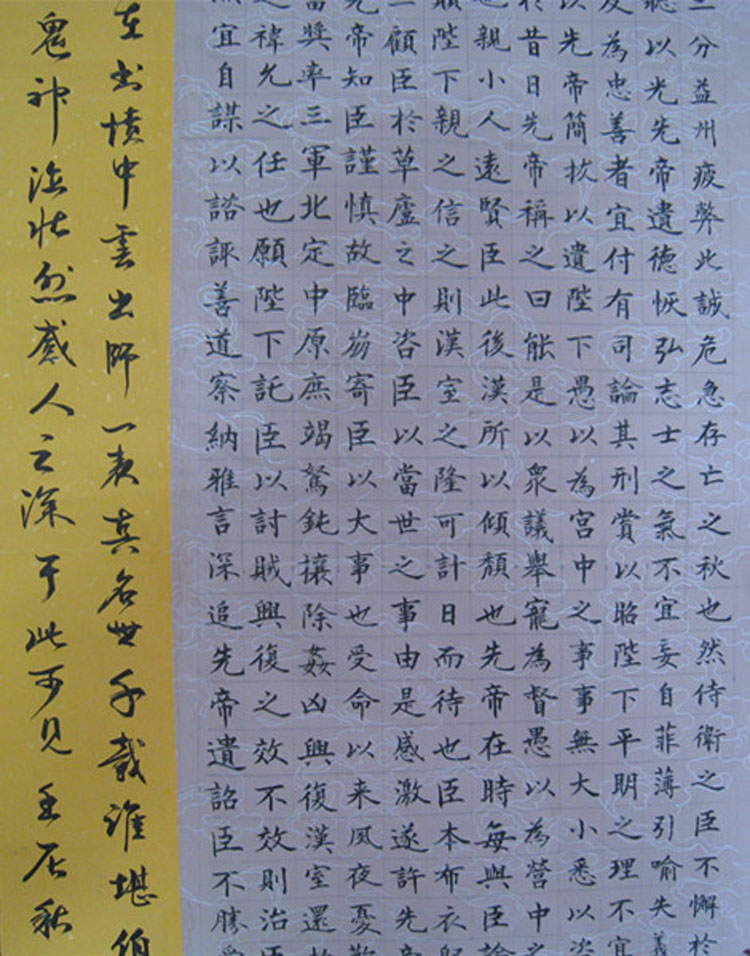 三分益州疲弊此誠危急存亡之秋也然侍衛之臣不懈於
聽以光先帝遺德恢弘志士之氣不宜妄自菲薄引喻失義
及為忠善者宜付有司論其刑賞以昭陛下平明之理不宜
以先帝簡拔以遺陛下愚以為宮中之事事無大小悉以咨
於昔日先帝稱之曰能是以眾議舉寵為督愚以為營中之
也親小人遠賢臣此後漢所以傾頹也先帝在時每與臣論
願陛下親之信之則漢室之隆可計日而待也臣本布衣躬
三顧臣於草廬之中咨臣以當世之事由是感激遂許先帝
先帝知臣謹慎故臨崩寄臣以大事也受命以来夙夜憂歎
當獎率三軍北定中原庶竭駑鈍攘除姦凶興復漢室還於
之禕允之任也願陛下託臣以討賊興復之效不效則治臣
宜自謀以諮諏善道察納雅言深追先帝遺詔臣不勝受
在書憤中雲出師一表真名世千載誰堪伯
鬼神泣壯烈感人之深于此可見壬辰秋